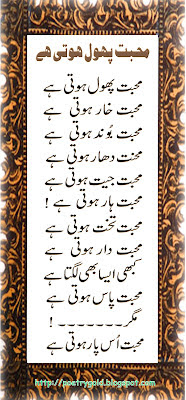 محبت پھول ہوتی ہے
محبت پھول ہوتی ہے
محبت خار ہوتی ہے
محبت بُوند ہوتی ہے
محبت دھار ہوتی ہے
محبت جیت ہوتی ہے
محبت ہار ہوتی ہے !
محبت تخت ہوتی ہے
محبت دار ہوتی ہے
کبھی ایسا بھی لگتا ہے
محبت پاس ہوتی ہے
مگر-------- !
محبت اُس پار ہوتی ہے
http://poetrygold.blogspot.com